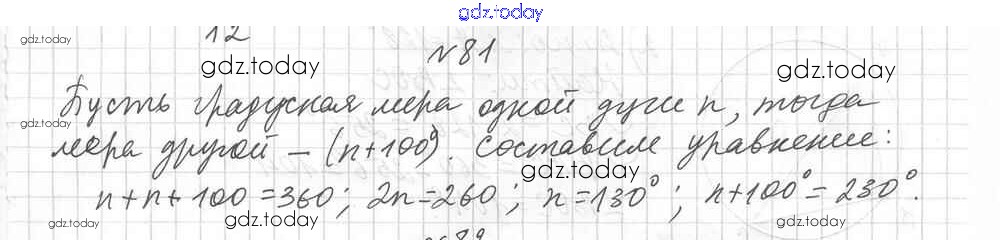 gdz.today
gdz.today 12
№81
gdz.today gdz.today
Пусть градусная мера одной дуги n, тогда
gdz.today
мера другой – (n+100°). Составим уравнение:
gdz.today
n+n+100=360; 2n=260; n=130°; n+100°=230°.
gdz.today gdz.today gdz.today